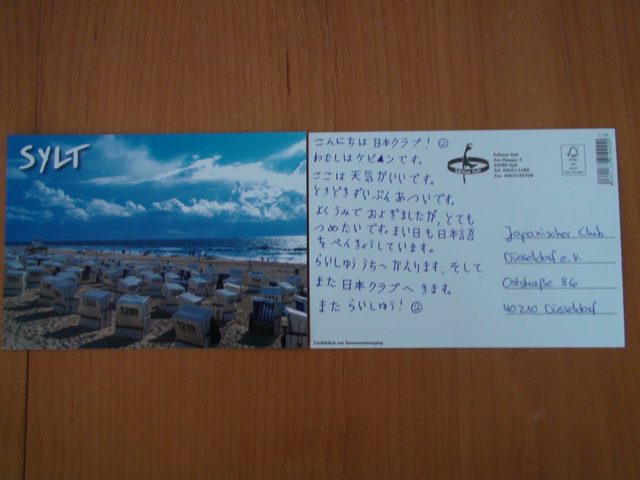 SYLT
1312
1299
こんにちは 日本クラブ! ☺
わたしは ケビンです。
ここは 天気が いいです。
ときどき ずいぶん あついです。
よく うみで およぎましたが、とても
つめたいです。まい日も 日本語
を べんきょうしています。
らいしゅう うちへ かえります、そして
また 日本クラブへ きます。
また らいしゅう! ☺
Edition Sylt
25980 Sylt
Edition Sylt
Japanischer Club
Düsseldorf e.V.
Oststraße 86
40210 Düsseldorf